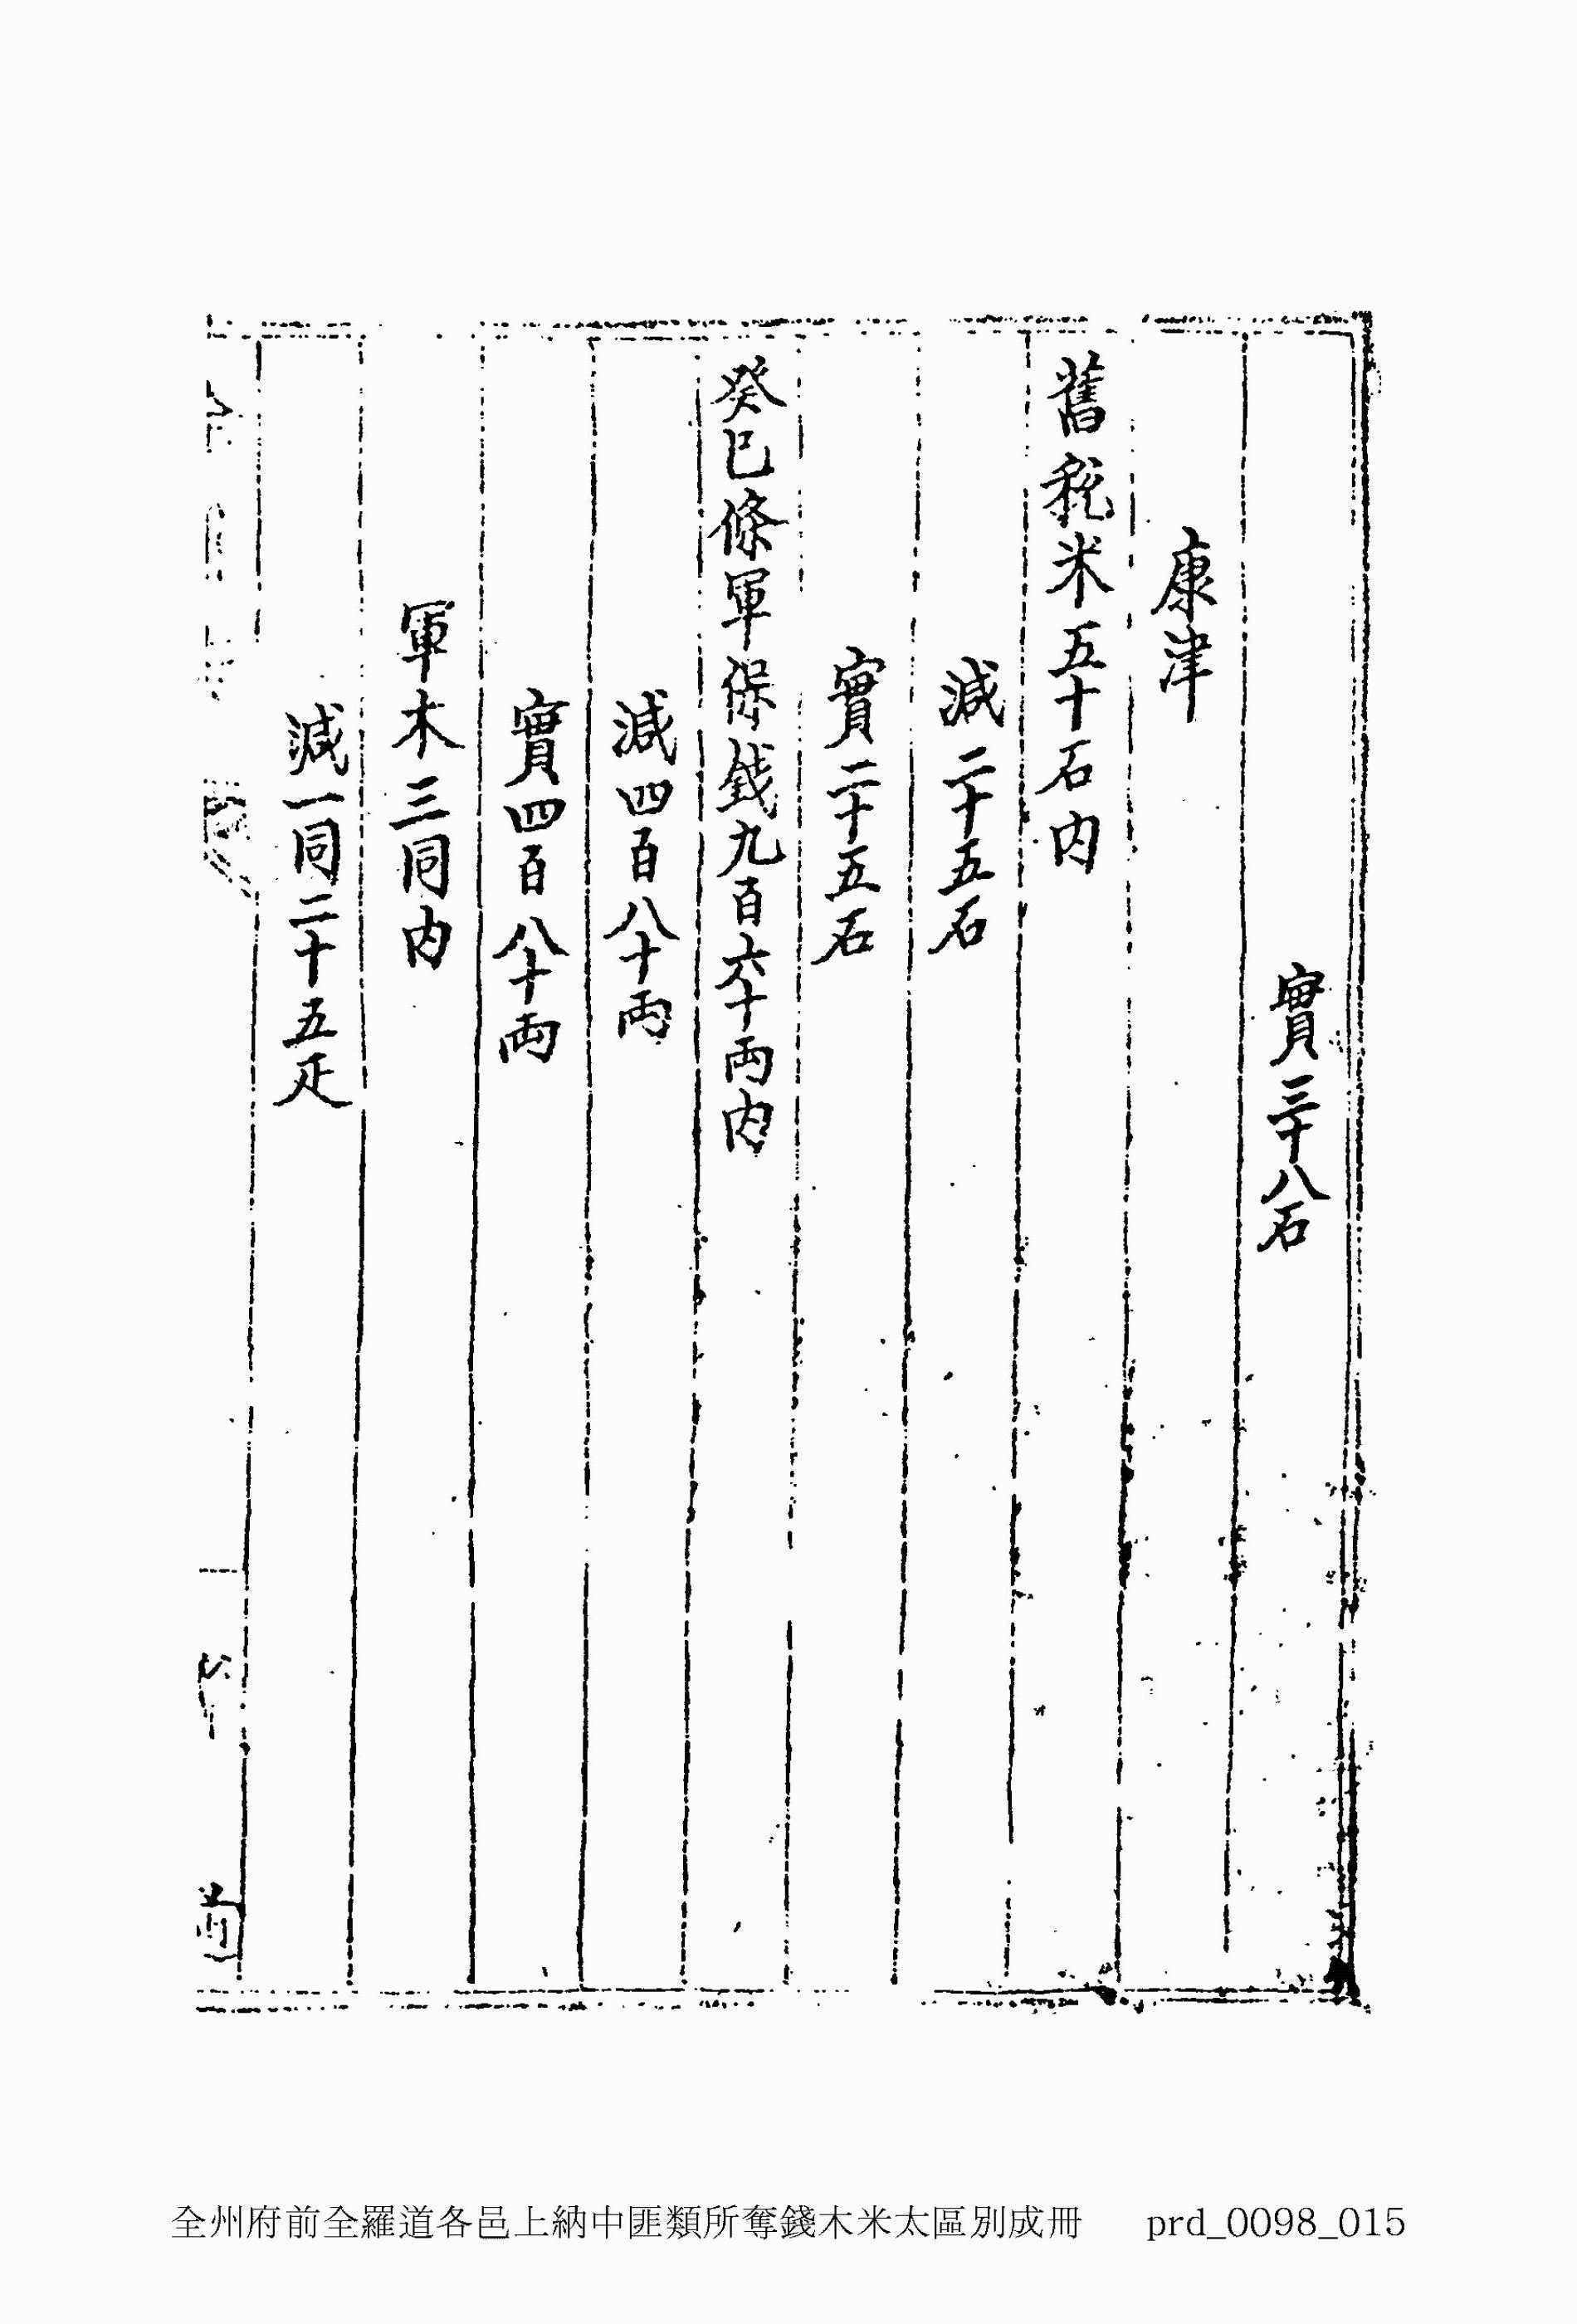 實三十八石
康津
舊稅米五十石内
減二十五石
實二十五石
癸巳條軍保錢九百六十両内
減四百八十両
實四百八十両
軍木三同内
減一同二十五疋
全州府前全羅道各邑上納中匪類所奪錢木米太區別成冊 prd_0098_015